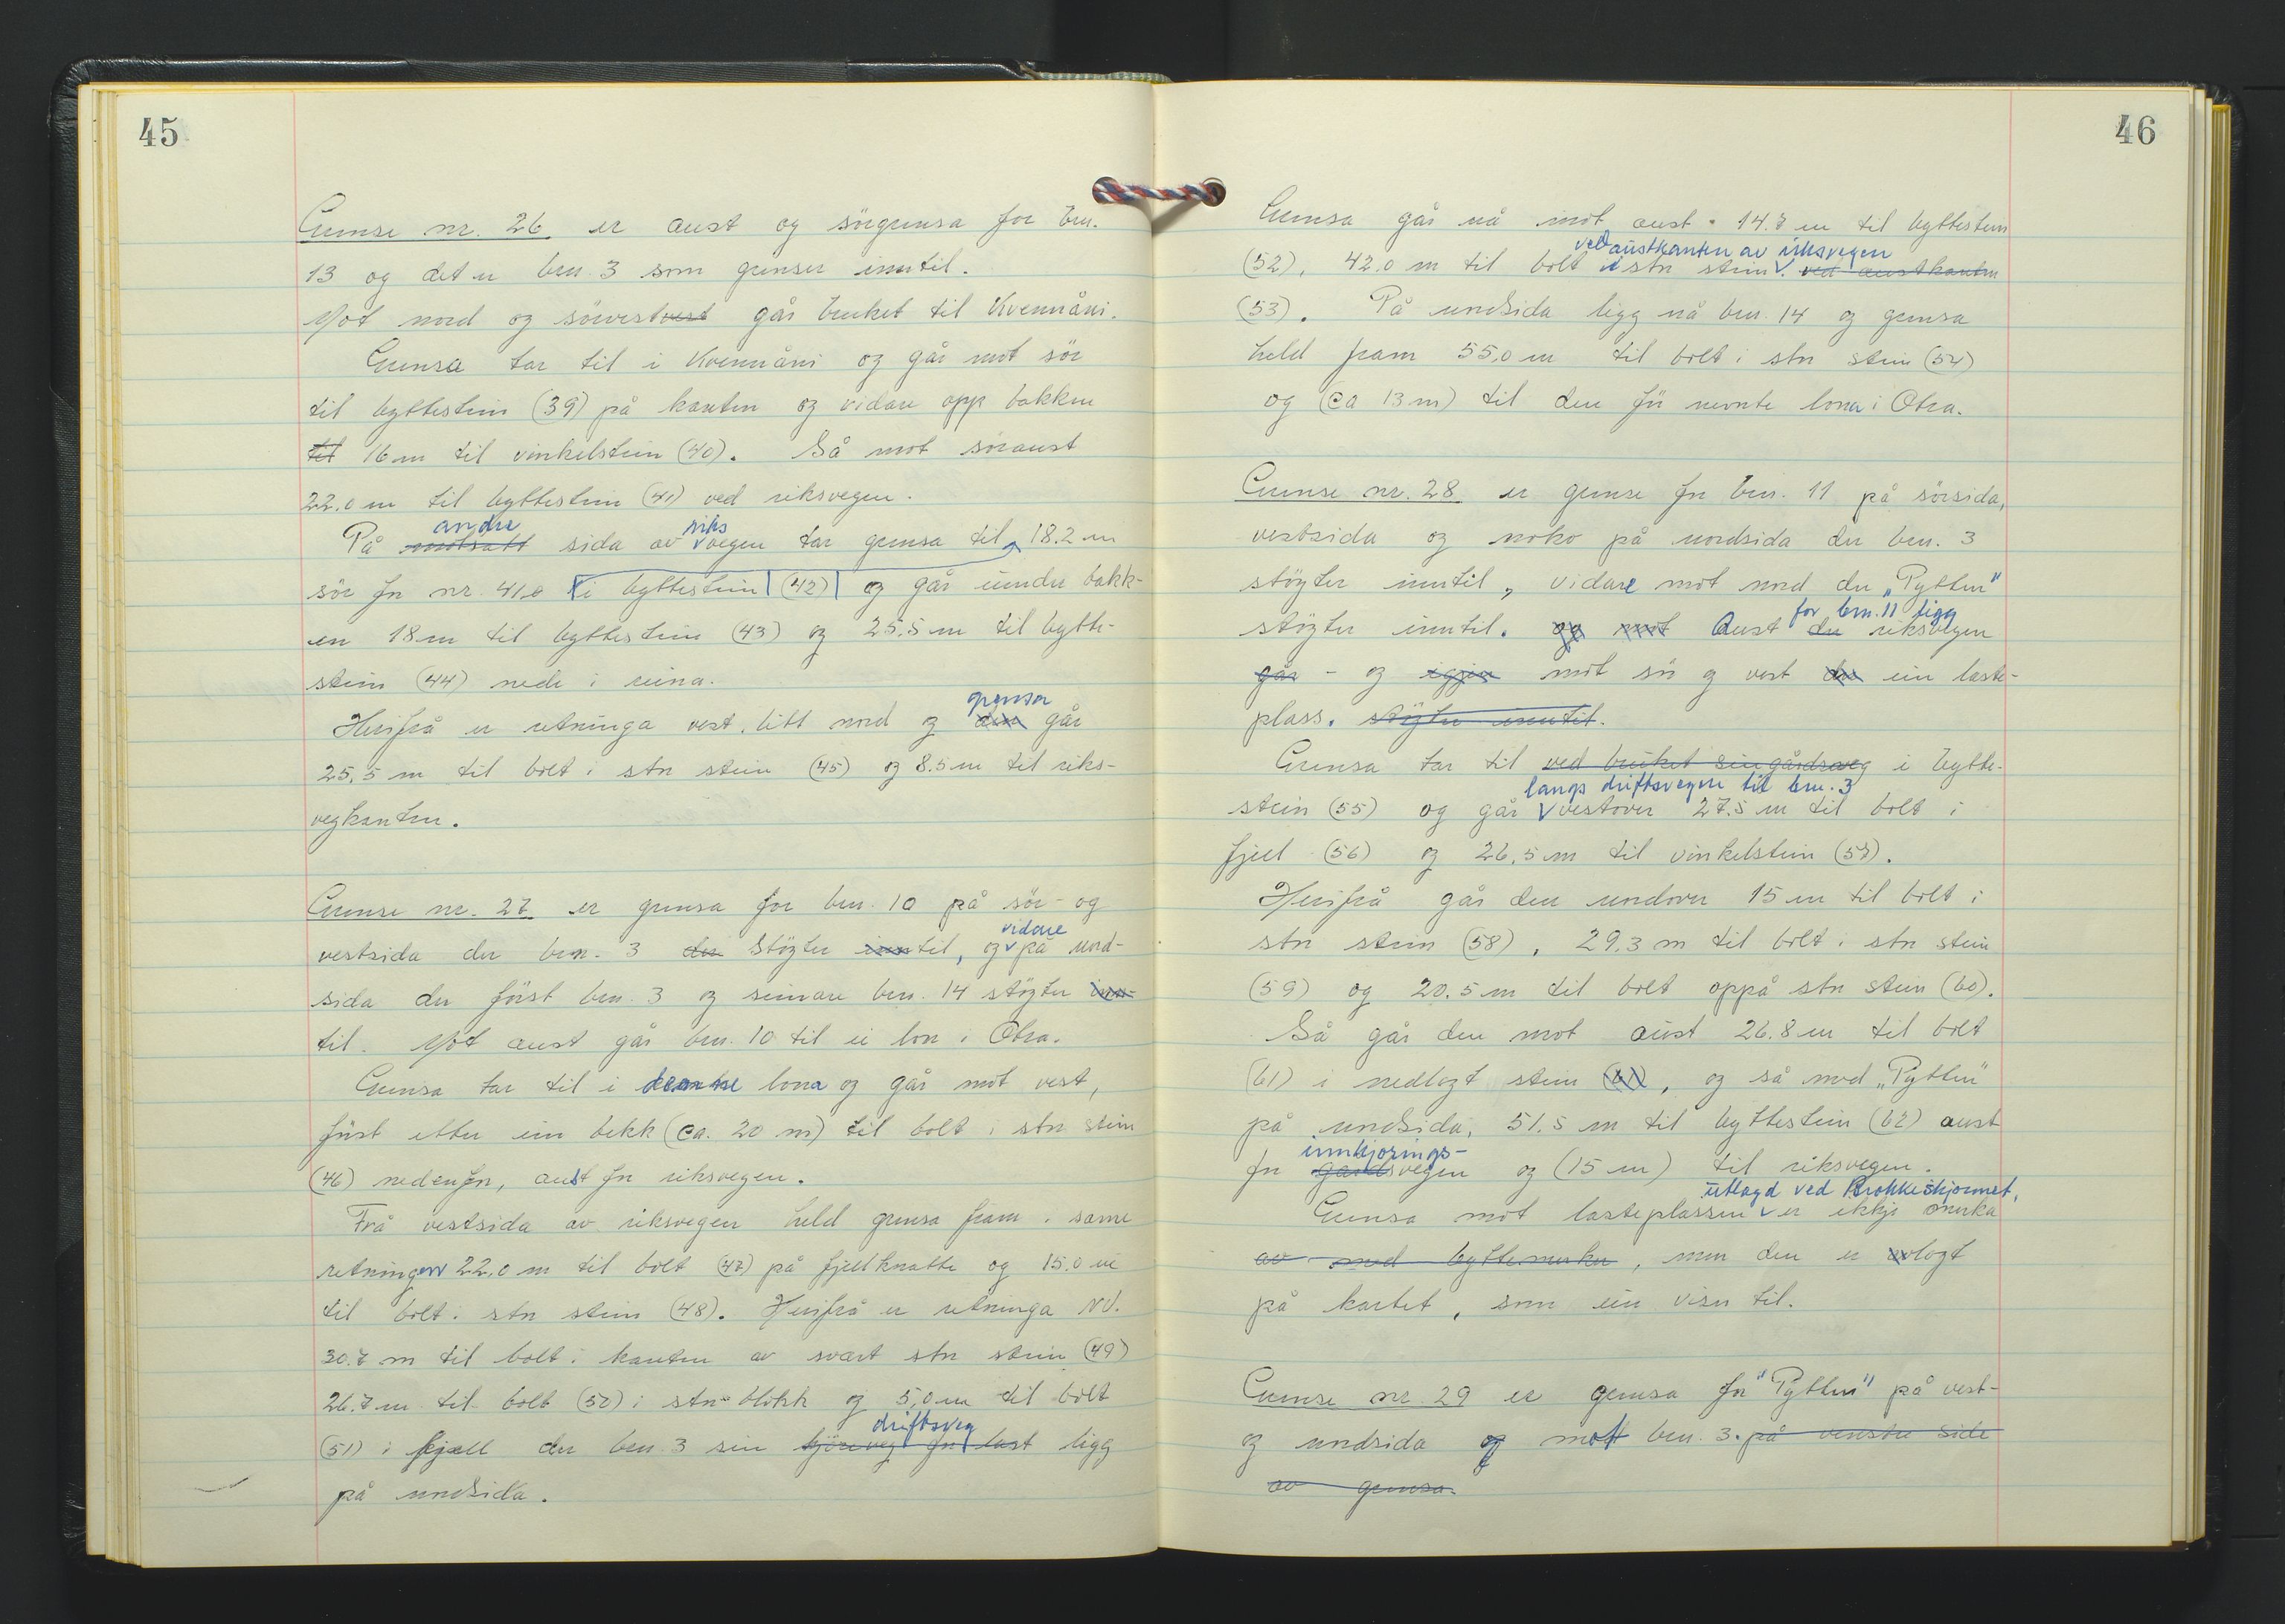 45
Grense nr. 26 er aust og sörgrensa for bru.
13 og det er bru. 3 som grenser inntil.
Mot nord og sörvest vest går bruket til Kvennåni.
Grensa tar til i Kvennåni og går mot sör
til byttestein (39) på kanten og vidare opp bakken
til 16 m til vinkelstein (40). Så mot söraust
22,0 m til byttestein (41) ved riksvegen.
andre riks
På motsatt sida av vegen tar grensa til 18.2 m
sör for nr. 41, i byttestein (42) og går under bakk-
en 18 m til byttestein (43) og 25.5 m til bytte-
stein (44) nede i reina.
grensa
Herifrå er retninga vest, litt nord og den går
25,5 m til bolt i stor stein (45) og 8.5 m til riks-
vegkanten.
Grense nr. 27 er grensa for bru. 10 på sör- og
vidare
vestsida der bru. 3 der stöyter inntil, og på nord-
sida der först bru. 3 og seinare bru. 14 stöyter inn-
til. Mot aust går bru. 10 til ei lon i Otra.
Grensa tar til i denne lona og går mot vest,
först etter ein bekk (ca. 20 m) til bolt i stor stein
(46) nedenfor, aust for riksvegen.
Frå vestsida av riksvegen held grensa fram i same
retningen 22,0 m til bolt (47) på fjellknatte og 15.0 m
til bolt i stor stein (48). Herifrå er retninga NV.
30.7 m til bolt i kanten av svært stor stein (49)
26.7 m til bolt (50) i stor blokk og 5,0 m til bolt
driftsveg
(51) i fjell der bru. 3 sin kjöreveg for last ligg
på nordsida.
46
Grensa går nå mot aust 14.7 m til byttestein
ved austkanten av riksvegen
(52), 42.0 m til bolt i stor stein. ved austkanten
(53). På nordsida ligg nå bru. 14 og grensa
held fram 55,0 m til bolt i stor stein (54)
og (ca 13 m) til den för nevnte lona i Otra.
Grense nr. 28 er grense for bru. 11 på sörsida,
vestsida og noko på nordsida der bru. 3
stöyter inntil, vidare mot nord der „Pytten"
for bru. 11 ligg
stöyter inntil. og mot Aust der riksvegen
går - og igjen mot sör og vest der ein laste-
plass. stöyter inntil.
Grensa tar til ved bruket sin gårdsveg i bytte-
langs driftsvegen til bru. 3
stein (55) og går vestover 27.5 m til bolt i
fjell (56) og 26,5 m til vinkelstein (57).
Herifrå går den nordover 15 m til bolt i
stor stein (58), 29.3 m til bolt i stor stein
(59) og 20.5 m til bolt oppå stor stein (60).
Så går den mot aust 26.8 m til bolt
(61) i nedlagt stein (61), og så med „Pytten"
på nordsida, 51.5 m til byttestein (62) aust
innkjörings-
for gardsvegen og (15 m) til riksvegen.
utlagd ved Brokkeskjönnet,
Grensa mot lasteplassen er ikkje omerka
av med byttemerker, men den er avlagt
på kartet, som ein viser til.
Grense nr. 29 er grensa for "Pytten" på vest-
og nordsida og mot bru. 3. på venstre side
av grensa.